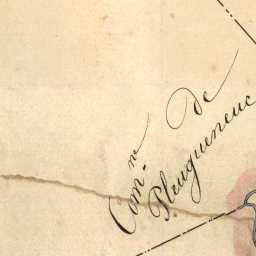 Com.ne de
Pleugueneuc